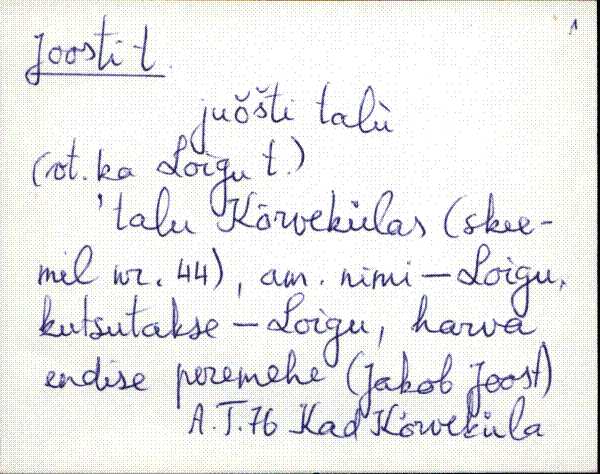 1
Joosti t.
juŏšti talù
(vt. ka Loigu t.)
'talu Kõrvekülas (skee-
mil nr. 44), am. nimi – Loigu,
kutsutakse – Loigu, harva
endise peremehe (Jakob Joost)
A.T. 76 Kad Kõrveküla